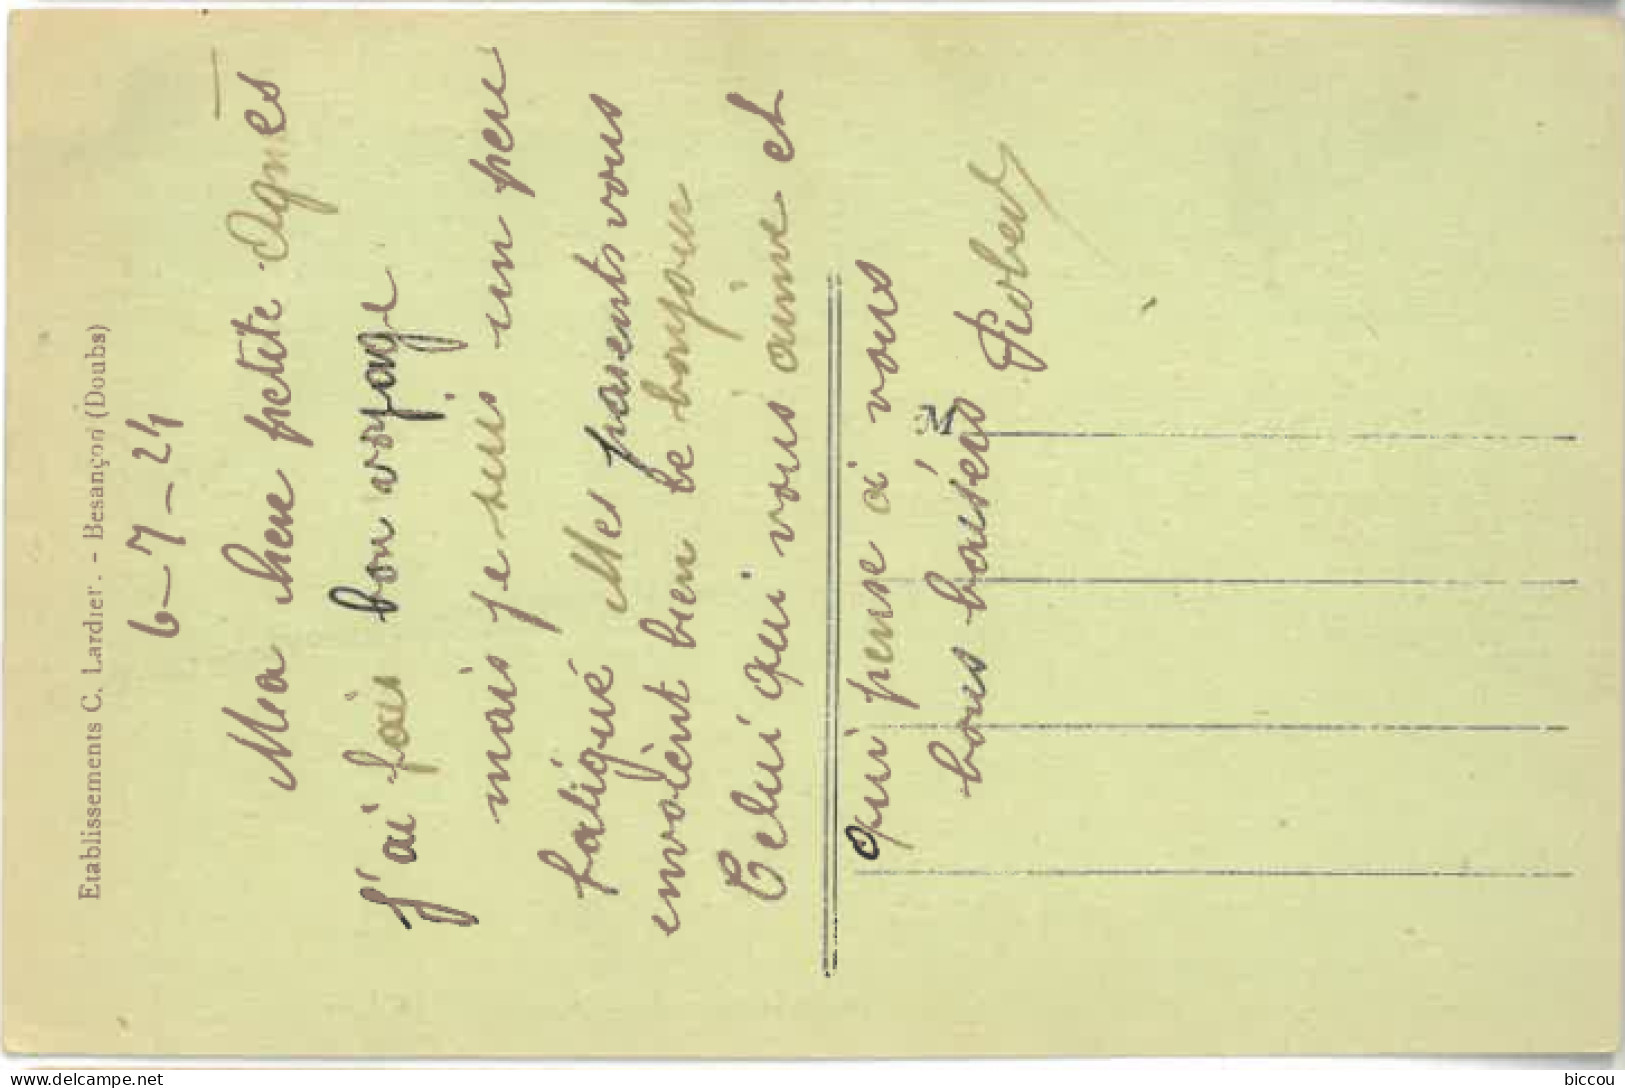 Etablissements C. Lardier. - Besançon (Doubs)
6-7-24
Ma chere petite Agnès
J'ai fais bon voyage
mais je suis un peu
fatigué Mes parents vous
envoient bien le bonjour
Celui qui vous aime et
qui pense à vous
M
bons baisers Robert
delcampe.net
biccou